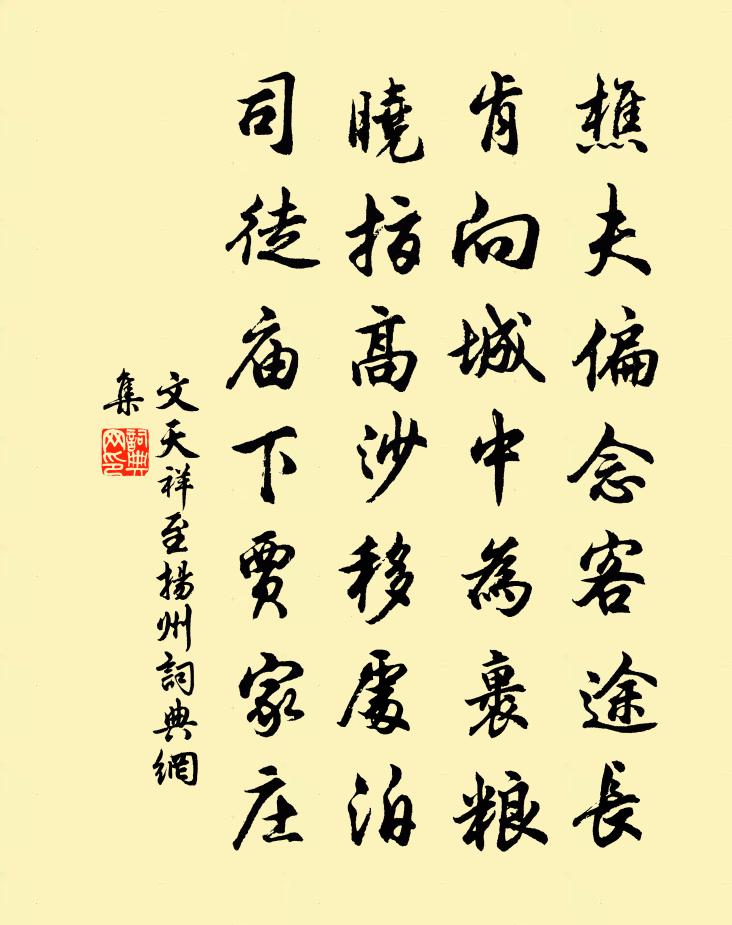 樵夫偏念客途長
肯向城中為裹粮
曉指高沙移處泊
司徒庙下賈家庄
文天祥至揚州詞典網
集
詞典
网印